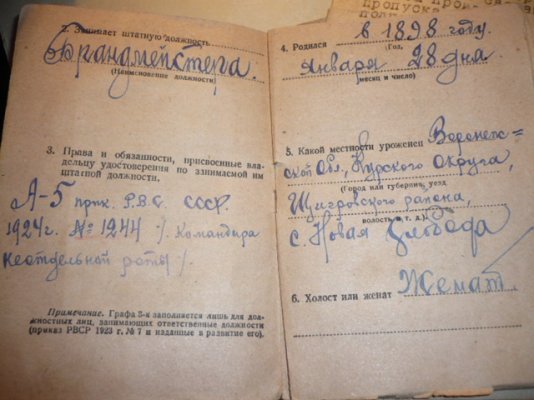 пропуска
2. Занимает штатную должность
Брандмейстера.
(Наименование должности)
3. Права и обязанности, присвоенные вла-
дельцу удостоверения по занимаемой им
штатной должности.
А-5 прик. Р.В.С. СССР.
1924 г. № 1244 /. Командира
неотдельной роты /.
Примечание. Графа 3-я заполняется лишь для дол-
жностных лиц, занимающих ответственные должности
(приказ РВСР 1923 г. № 7 и изданные в развитие его).
4. Родился в 1898 году.
(Год,
Января 28 дня
месяц и число)
5. Какой местности уроженец Воронеж=
ской Обл., Курского Округа,
(Город или губерния, уезд
Щигровского района,
волость и т. д.)
с. Новая Слобода
6. Холост или женат Женат.